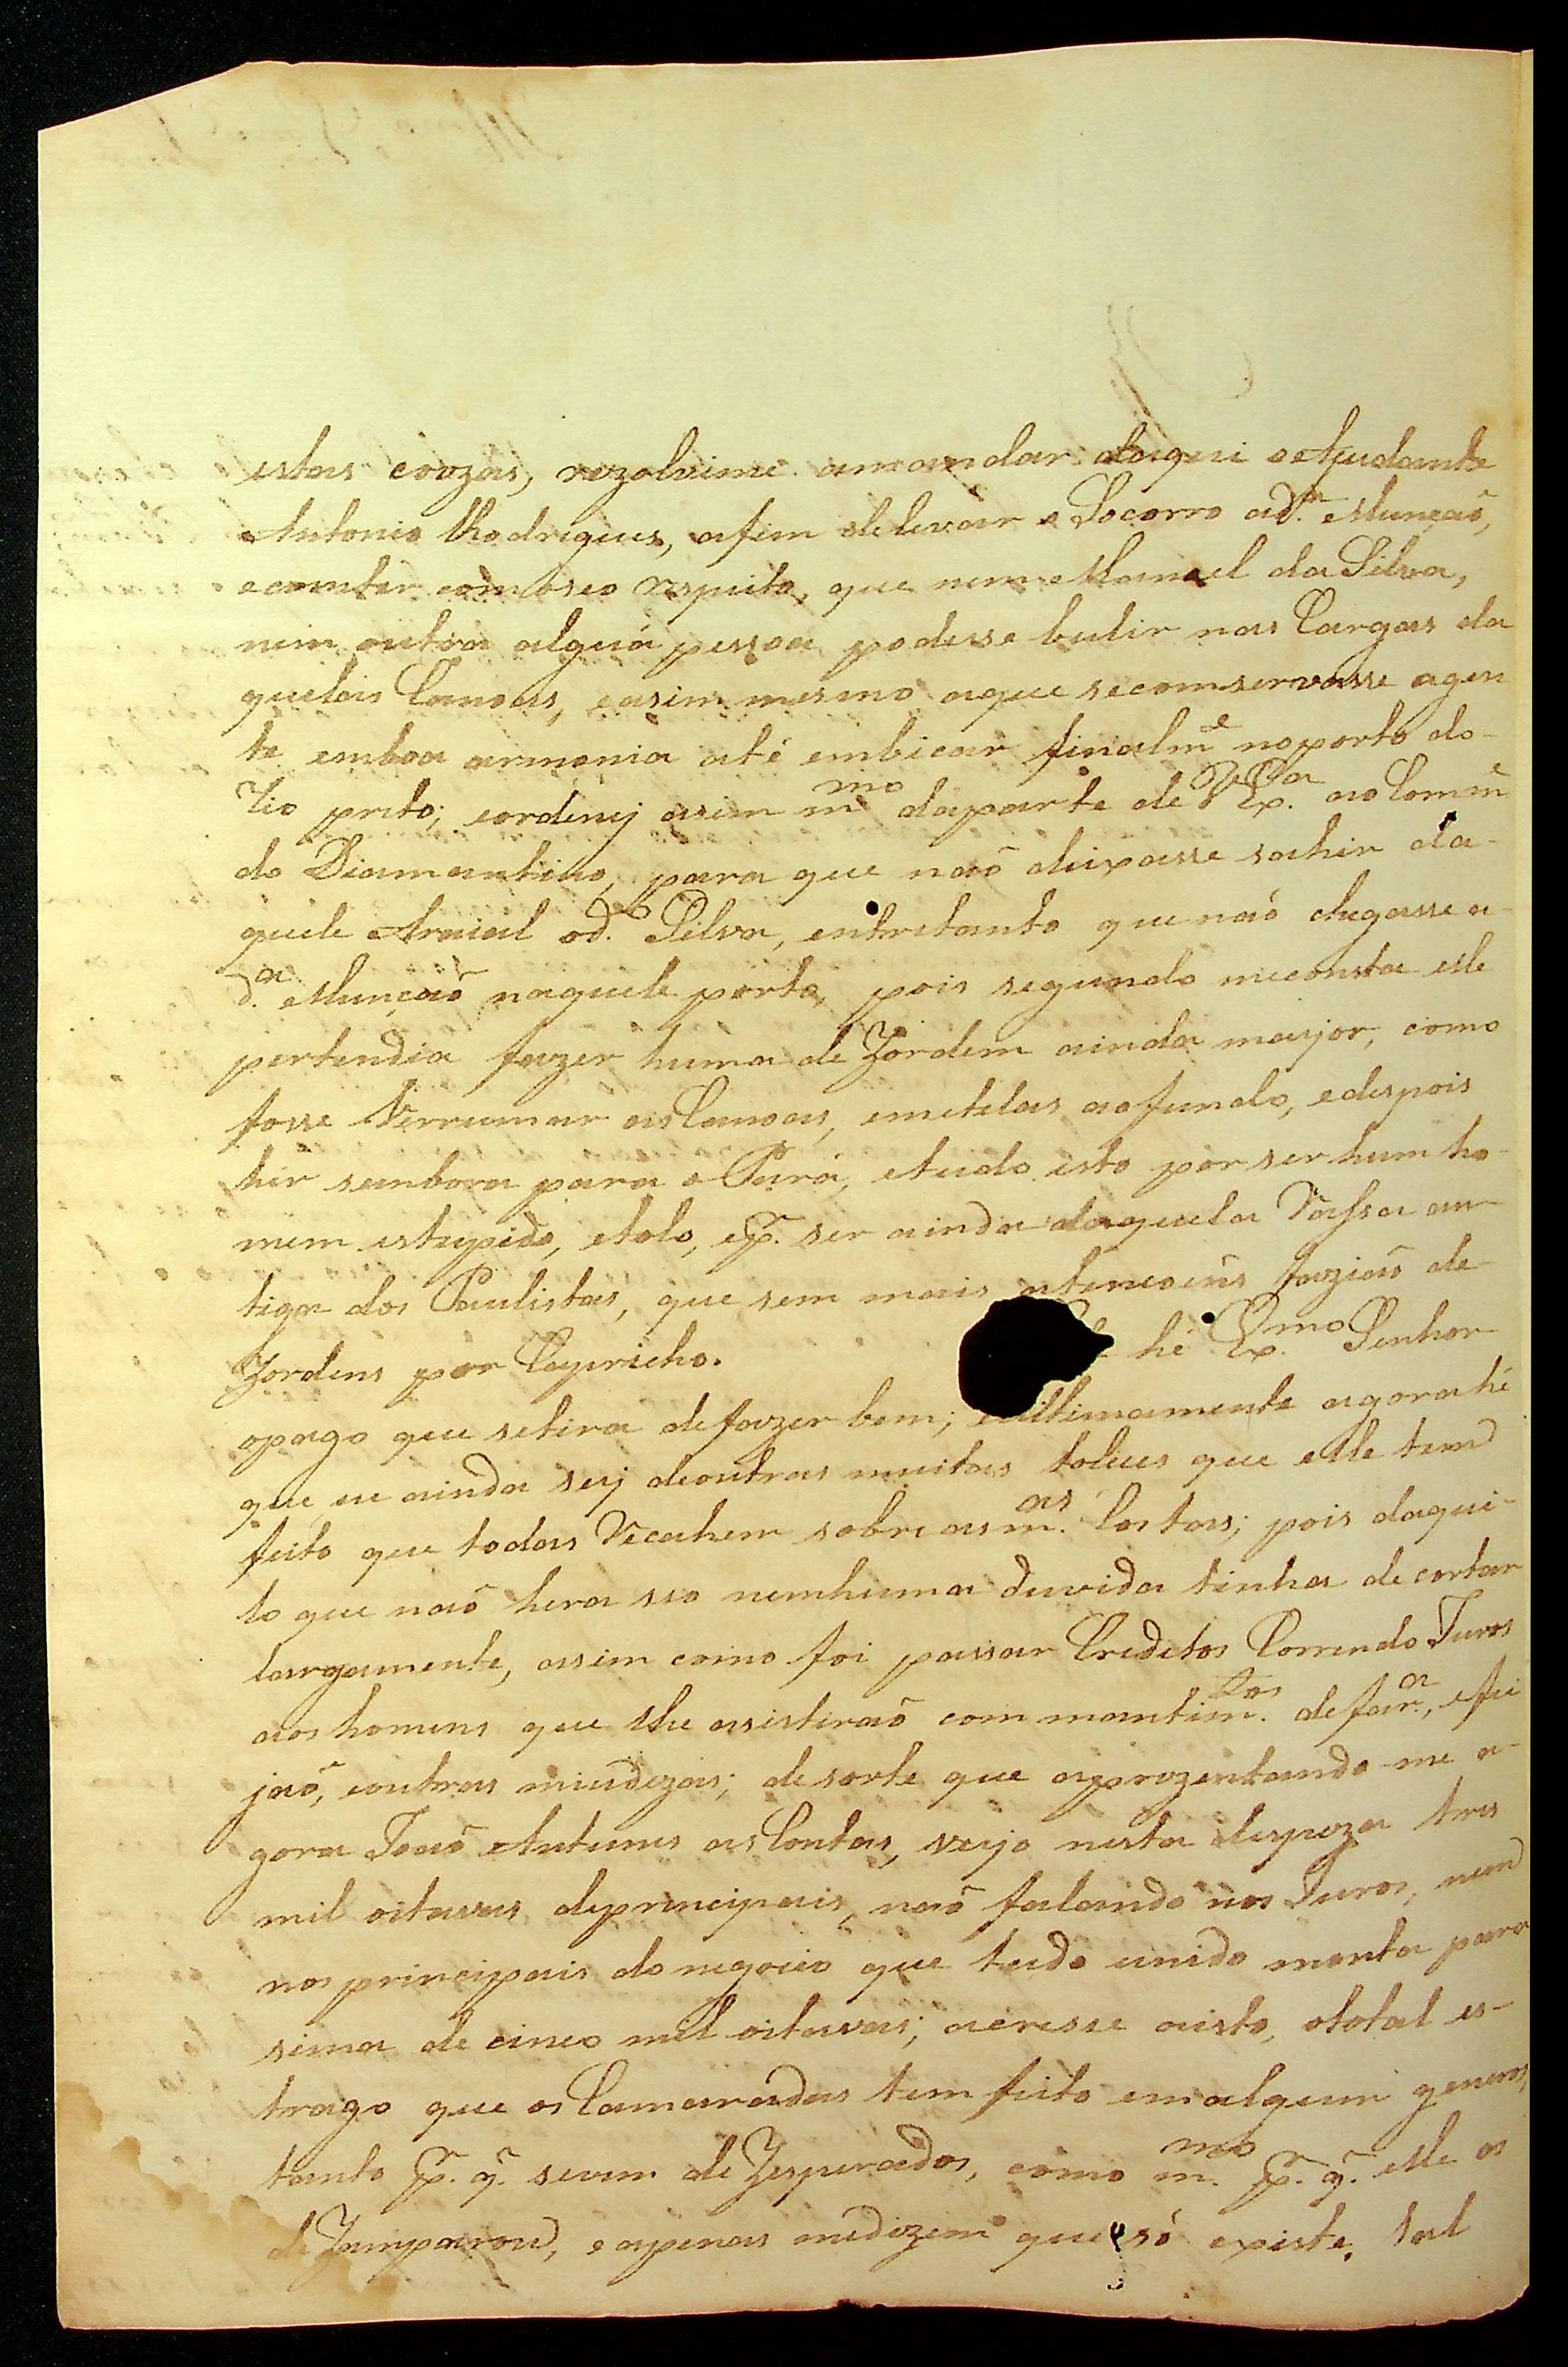 estas couzas, rezolvime amandar daqui o Ajudante
Antonio Rodrigues, afim de levar o Socorro ad.ª Munçaõ,
econter com oseo respeito, que nem Manoel da Silva,
nem outra algũa pessoa podesse bulir nas Cargas da
quelas Canoas, easim mesmo aque seconservasse agen
te emboa armonia até embicar finalm.e noporto do
Rio preto; eordenej asim m.mo daparte de V Ex.ª ao Com.e
do Diamantino, para que naõ deixasse sahir da-
quele Araial od.o Silva, entretanto que naõ chegasse a
d.ª Munçaõ naquele porto, pois segundo meconsta elle
pertendia fazer huma deZordem ainda major, como
fosse Verrumar as Canoas, emetelas aofundo, edespois
hir sembora para o Pará, etudo isto por ser hum ho-
mem estupido, etolo, ep.r ser ainda daquela Rassa an-
tiga dos Paulistas, que sem mais atencoens faziaõ de
Zordens por Capricho. he Ex.mo Senhor
opago que setira defazer bem; eultimamente agora hé
que eu ainda sej deoutras muitas tolices que elle tem
feito que todas Recahem sobre as m.as Costas; pois daqui-
lo que naõ hera seo nemhuma duvida tinha de cortar
largamente, assim como foi passar Creditos Correndo Juros
aos homens que lhe asistiraõ com mantim.tos de far.a, efei
jaõ, eoutras miudezas; desorte que aprezentando-me a-
gora Joaõ Antunes as Contas, vejo nesta despeza tres
mil oitavas deprincipais, naõ falando nos Juros, nem
nos principais do negocio que tudo unido monta para
sima de cinco mil oitavas; acresse aisto, ototal es-
trago que os Camaradas tem feito emalguns generos,
tanto p.r q.e severem deZesperados, como m.mo p.r q.e elle os
deZamparou, e apenas medizem que só existe, tal